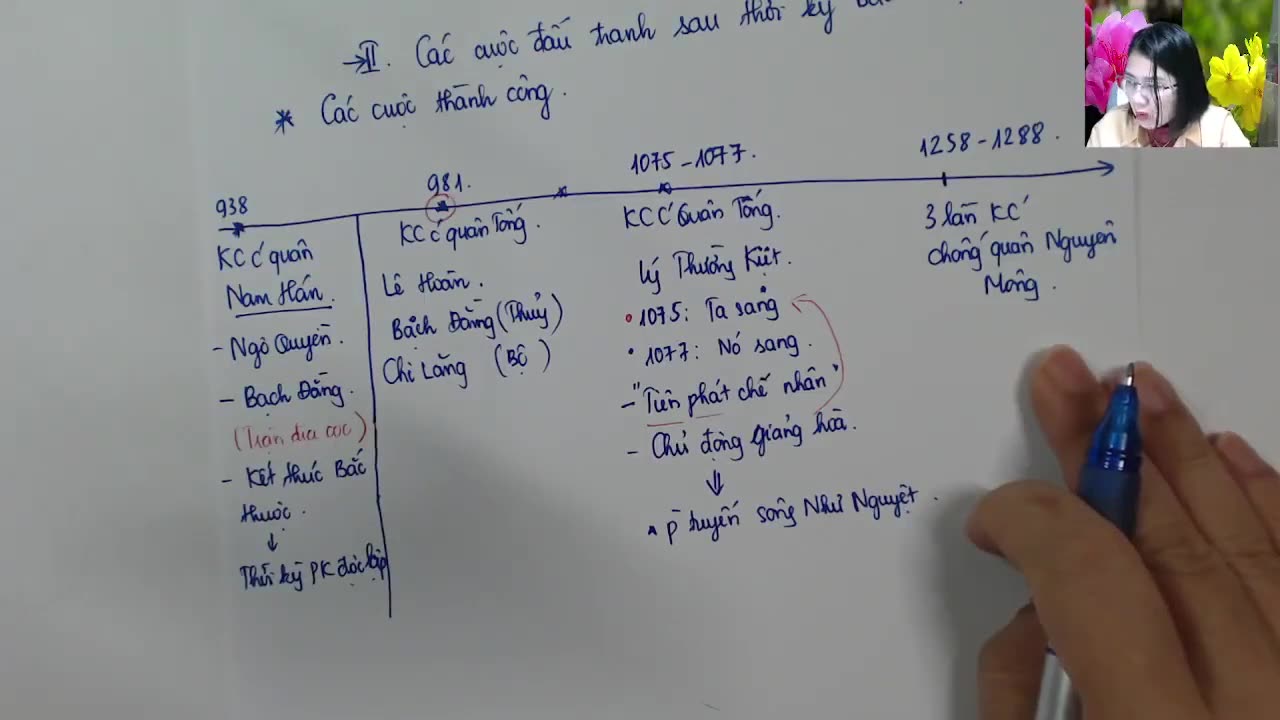 → II. Các cuộc đấu tranh sau thời kỳ
* Các cuộc thành công.
938
981.
1075 - 1077.
1258 - 1288.
KC c' quân
Nam Hán.
- Ngô Quyền.
- Bạch Đằng.
(Trận địa cọc)
- Kết thúc Bắc
thuộc.
↓
Thời kỳ PK độc lập
KC c' quân Tống.
Lê Hoàn.
Bạch Đằng (Thủy)
Chi Lăng (Bộ)
KC C' Quân Tống.
Lý Thường Kiệt.
• 1075: Ta sang
• 1077: Nó sang.
- "Tiên phát chế nhân"
- Chủ động giảng hoà.
⇓
p' tuyến sông Như Nguyệt.
3 lần KC
chống quân Nguyên
Mông.